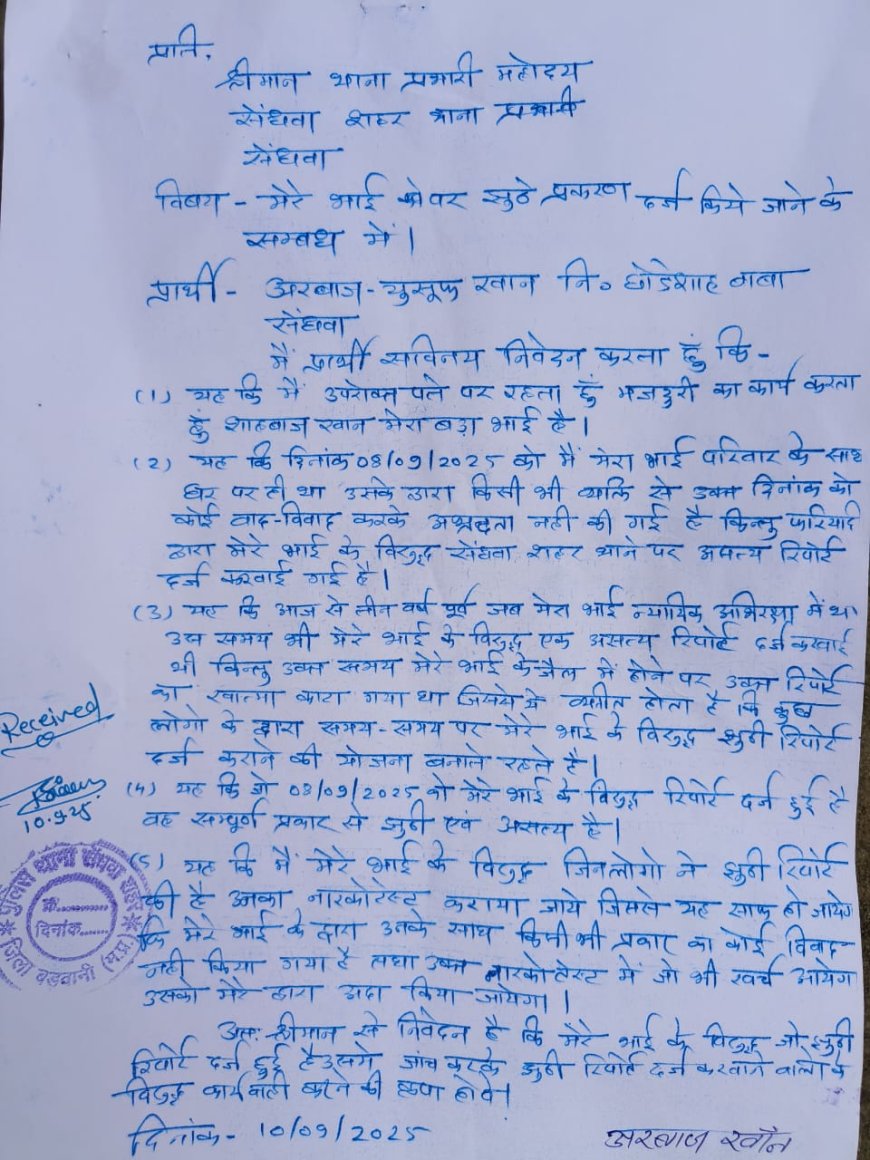 प्रति,
श्रीमान थाना प्रभारी महोदय
सेंधवा शहर थाना प्रभारी
सेंधवा
विषय - मेरे भाई के पर झुठे प्रकरण दर्ज किये जाने के
सम्बध में।
प्रार्थी - अरबाज - युसूफ खान नि० छोटेशाह बाबा
सेंधवा
मैं प्रार्थी सविनय निवेदन करता हुं कि -
(1) यह कि मैं उपरोक्त पते पर रहता हुं मजदुरी का कार्य करता
हुं शाहबाज खान मेरा बड़ा भाई है।
(2) यह कि दिनांक 08/09/2025 को मैं मेरा भाई परिवार के साथ
घर पर ही था उसके द्वारा किसी भी व्यक्ति से उक्त दिनांक को
कोई वाद-विवाद करके अभद्रता नही की गई है किन्तु फरियादि
द्वारा मेरे भाई के विरुद्ध सेंधवा शहर थाने पर असत्य रिपोर्ट
दर्ज करवाई गई है।
(3) यह कि आज से तीन वर्ष पूर्व जब मेरा भाई न्यायिक अभिरक्षा में था
उस समय भी मेरे भाई के विरुद्ध एक असत्य रिपोर्ट दर्ज करवाई
थी किन्तु उक्त समय मेरे भाई के जैल में होने पर उक्त रिपोर्ट
का खात्मा काटा गया था जिससे ये होता है कि कुछ
लोगो के द्वारा समय-समय पर मेरे भाई के विरुद्ध झुठी रिपोर्ट
दर्ज कराने की योजना बनाते रहते है।
Received
10.9.25
(4) यह कि जो 08/09/2025 को मेरे भाई के विरुद्ध रिपोर्ट दर्ज हुई है
वह सम्पूर्ण प्रकार से झुठी एवं असत्य है।
(5) यह कि मैं मेरे भाई के विरुद्ध जिनलोगो ने झुठी रिपोर्ट
की है उनका नारकोटेस्ट कराया जाये जिससे यह साफ हो जायेगा
कि मेरे भाई के द्वारा उनके साथ किसी भी प्रकार का कोई विवाद
नही किया गया है तथा उक्त नारकोटेस्ट में जो भी खर्च आयेगा
उसको मेरे द्वारा अदा किया जायेगा।
पुलिस थाना सेंधवा शहर
क्र............
दिनांक........
जिला बड़वानी (म.प्र.)
अतः श्रीमान से निवेदन है कि मेरे भाई के विरुद्ध जो झुठी
रिपोर्ट दर्ज हुई है उसमे जाच करके झुठी रिपोर्ट दर्ज करवाने वालो के
विरुद्ध कार्यवाही करने की कृपा होवे।
दिनांक - 10/09/2025
अरबाज खाँन